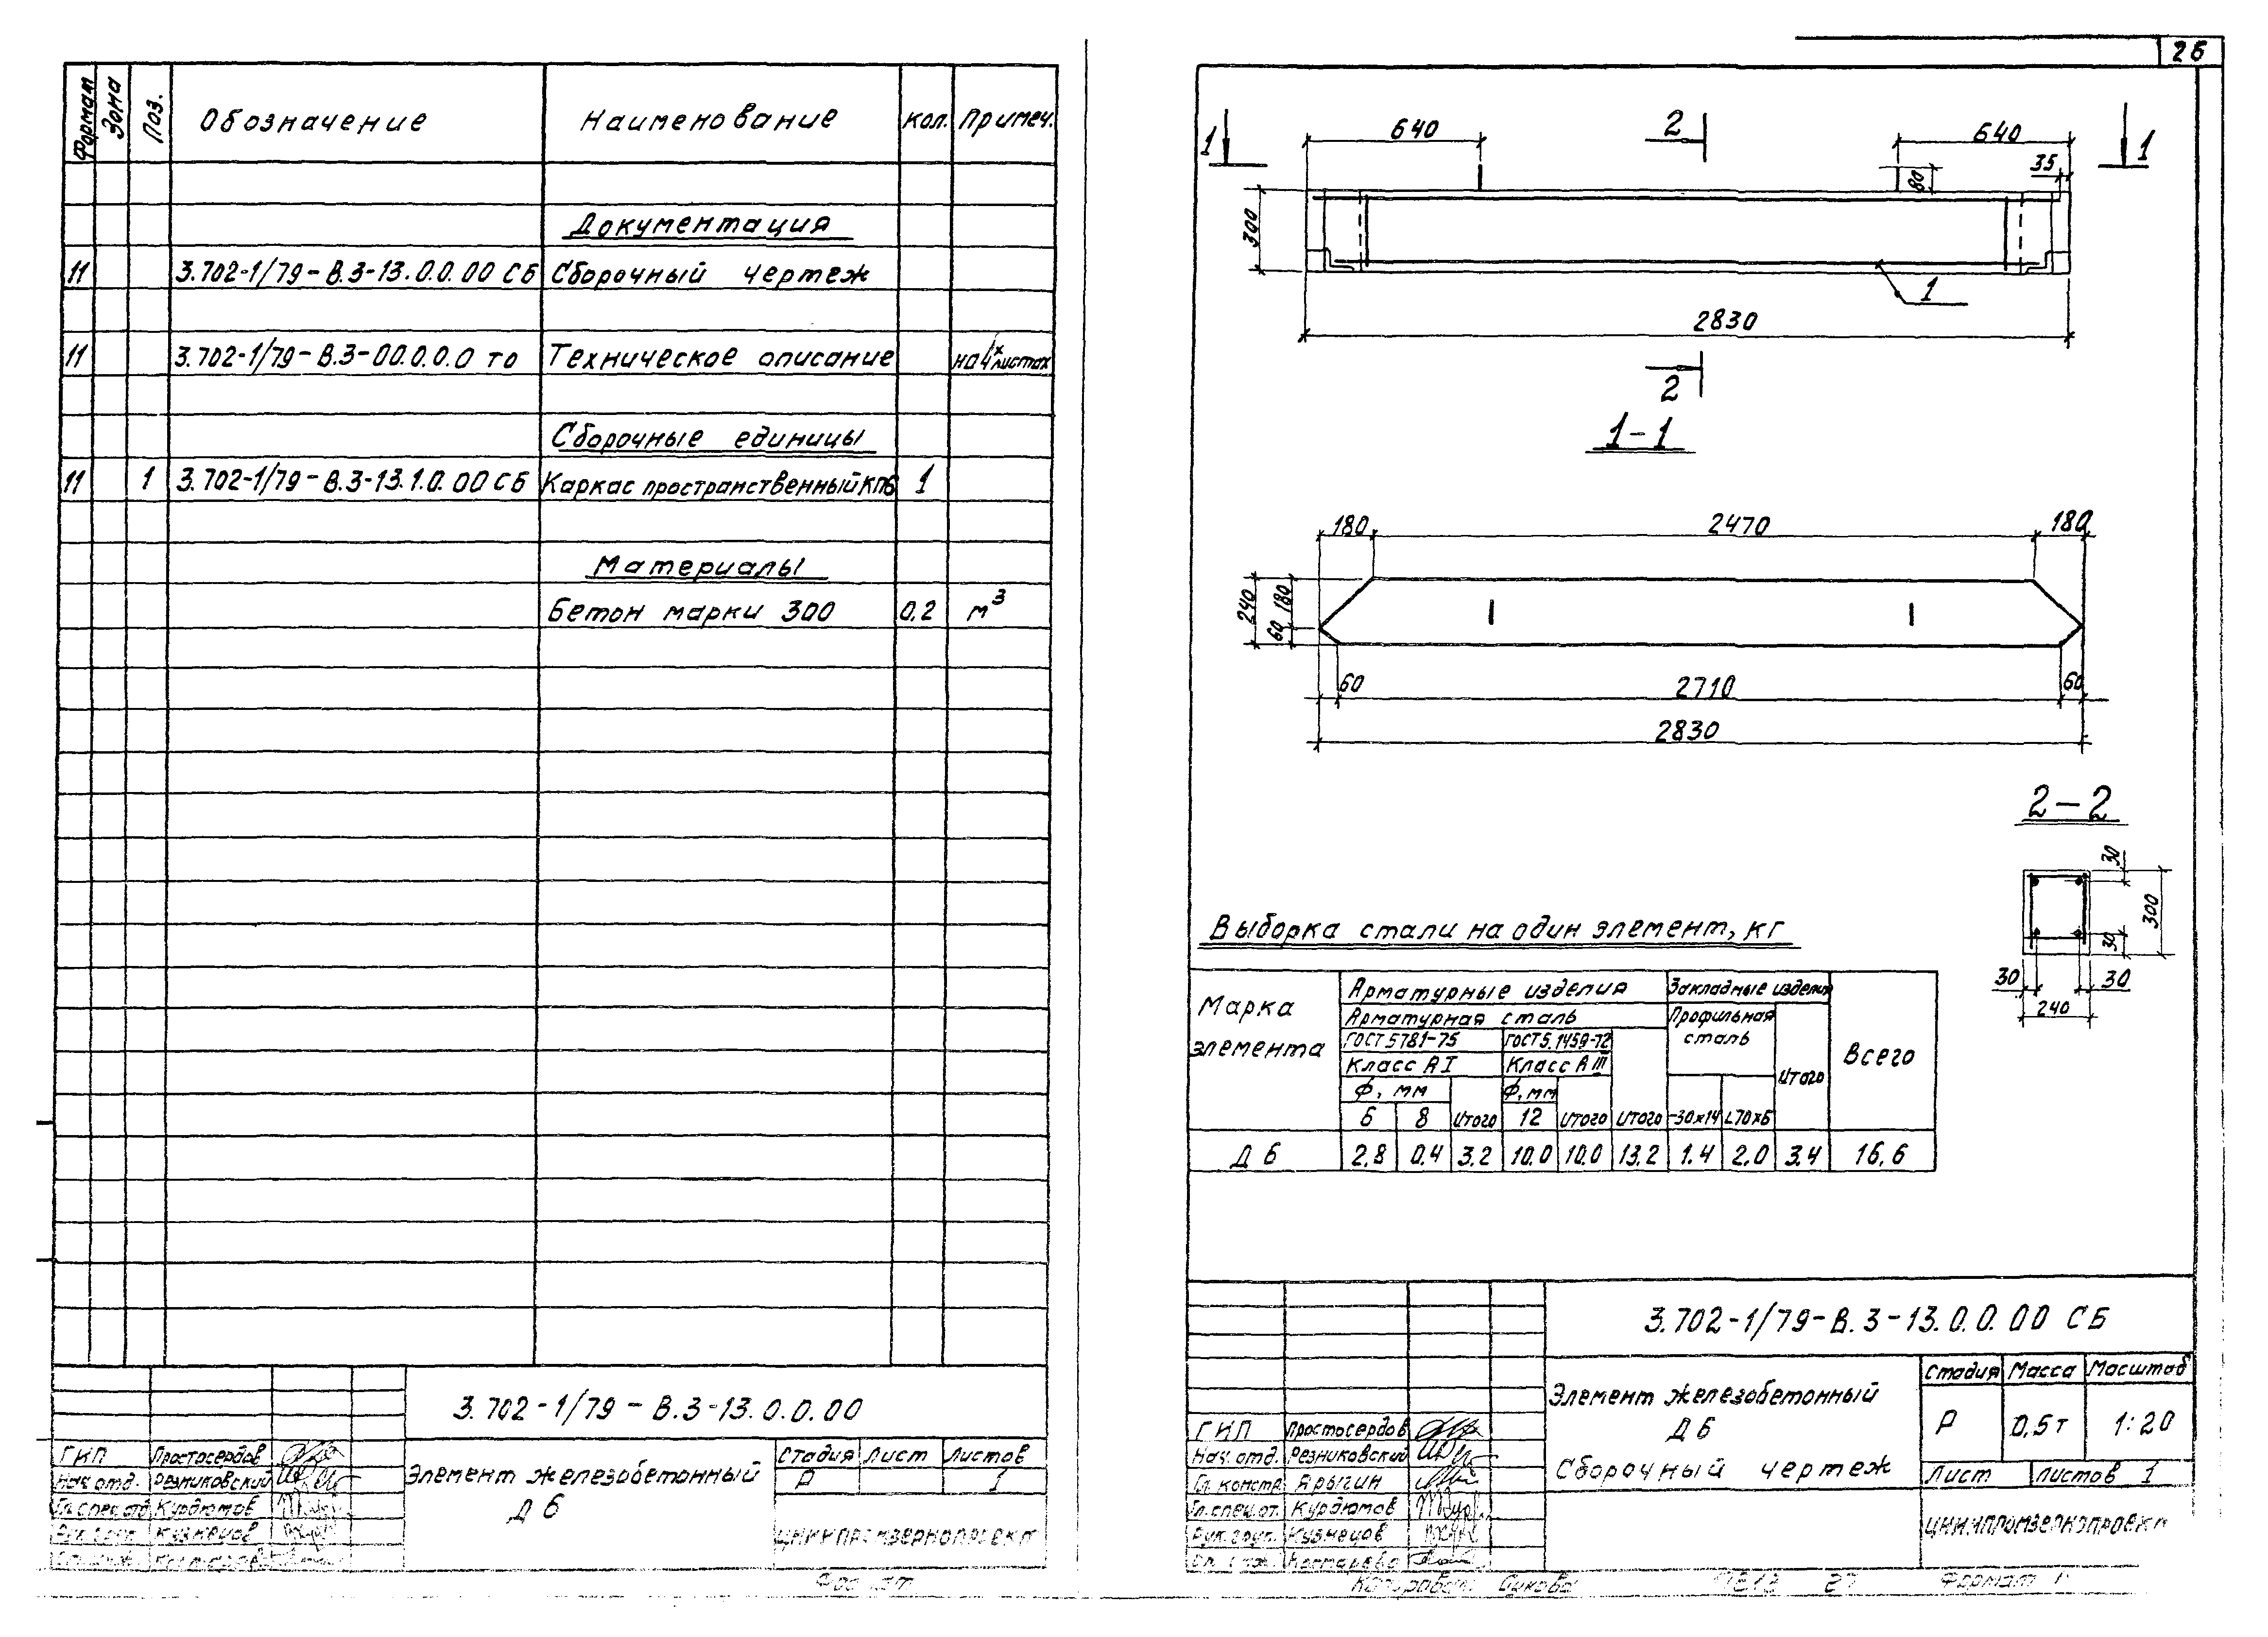 Формат Зона Поз. Обозначение Наименование Кол. Примеч.
Документация
11 3.702-1/79-В.3-13.0.0.00 СБ Сборочный чертеж
11 3.702-1/79-В.3-00.0.0.0 ТО Техническое описание на 4х листах
Сборочные единицы
11 1 3.702-1/79-В.3-13.1.0.00 СБ Каркас пространственный КП6 1
Материалы
Бетон марки 300 0,2 м³
3.702-1/79-В.3-13.0.0.00
ГИП Простосердов
Нач. отд. Резниковский
Гл. спец. отд. Курдюмов
Рук. груп. Кузнецов
Элемент железобетонный
Д 6
Стадия Лист Листов
Р 1
ЦНИИПРОМЗЕРНОПРОЕКТ
Формат
26
640 2 640
1 1
35
80
300
1
2830
2
1-1
180 2470 180
240 180 60
60 2710 60
2830
2-2
30
300
30
30 30
240
Выборка стали на один элемент, кг
Марка элемента
Арматурные изделия Закладные изделия
Арматурная сталь Профильная сталь
ГОСТ 5781-75 ГОСТ 5.1459-72
Класс АI Класс АIII
Всего
Итого
Ф, мм Ф, мм
6 8 Итого 12 Итого Итого -30x14 L70x6
Д 6 2,8 0,4 3,2 10,0 10,0 13,2 1,4 2,0 3,4 16,6
3.702-1/79-В.3-13.0.0.00 СБ
Элемент железобетонный
Д 6
Сборочный чертеж
Стадия Масса Масштаб
Р 0,5т 1:20
Лист Листов 1
ГИП Простосердов
Нач. отд. Резниковский
Гл. констр. Ярыгин
Гл. спец. от. Курдюмов
Рук. груп. Кузнецов
ЦНИИПРОМЗЕРНОПРОЕКТ
Копировал 27 Формат